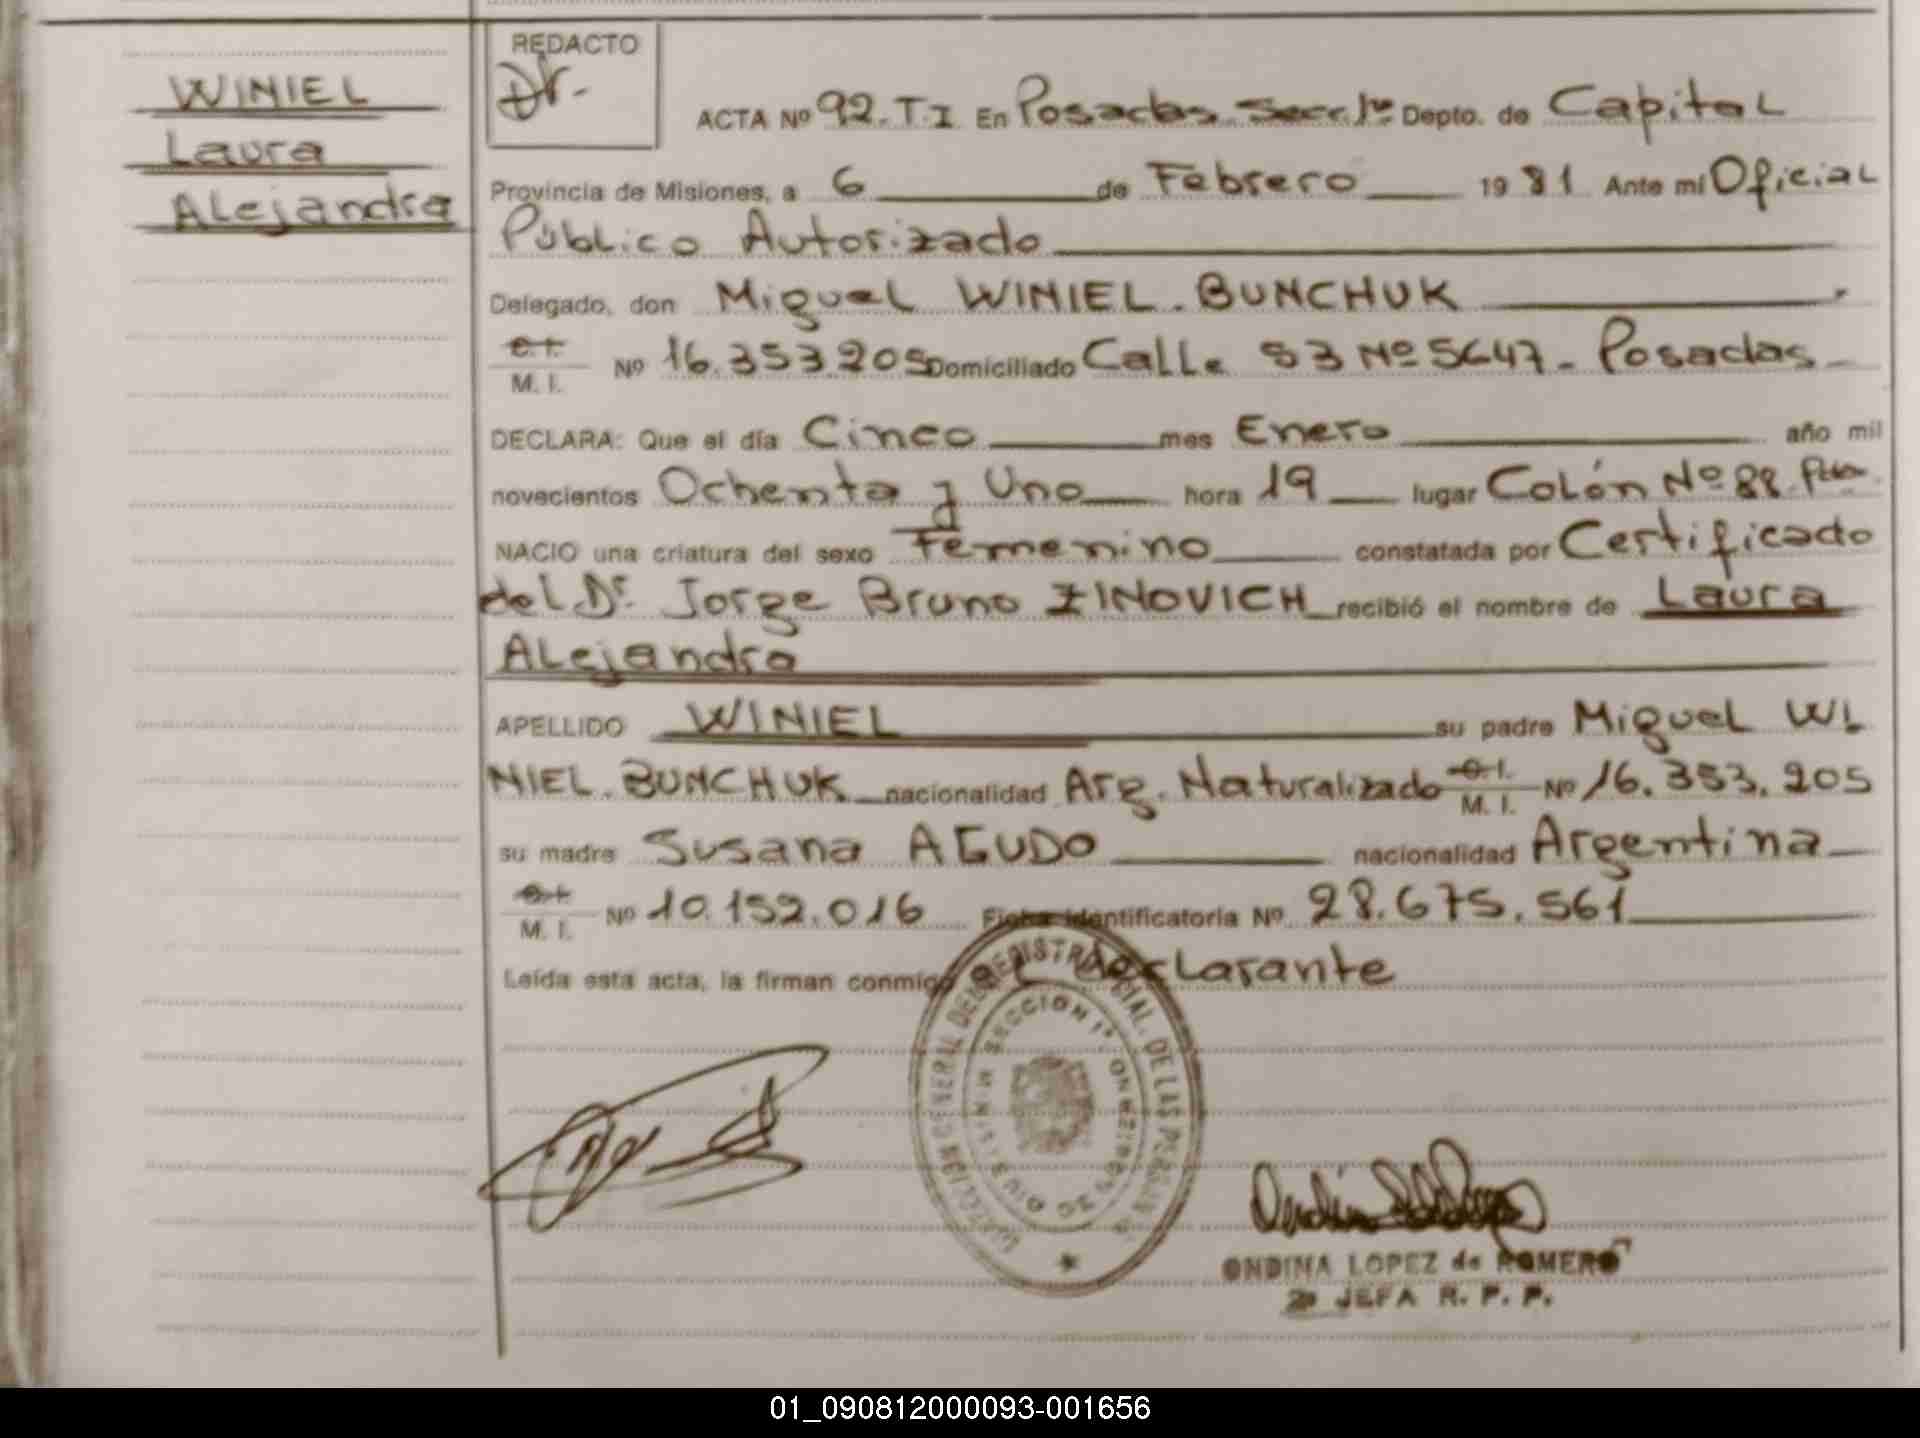 WINIEL
Laura
Alejandra
REDACTO
ACTA Nº 92. T.I En Posadas Secc. 1ª Depto. de Capital
Provincia de Misiones, a 6 de Febrero 1981 Ante mí Oficial
Público Autorizado
Delegado, don Miguel WINIEL. BUNCHUK
C.I. M. I. Nº 16.353.205 Domiciliado Calle 83 Nº 5647- Posadas
DECLARA: Que el día Cinco mes Enero año mil
novecientos Ochenta y Uno hora 19 lugar Colón Nº 88. Pdas.
NACIO una criatura del sexo Femenino constatada por Certificado
del Dr. Jorge Bruno ZINOVICH recibió el nombre de Laura
Alejandra
APELLIDO WINIEL su padre Miguel WI
NIEL. BUNCHUK nacionalidad Arg. Naturalizado C.I. M. I. Nº 16.353.205
su madre Susana AGUDO nacionalidad Argentina
C.I. M. I. Nº 10.152.016 Ficha identificatoria Nº 28.675.561
Leída esta acta, la firman conmigo el declarante
DIRECCION GENERAL DEL REGISTRO PROVINCIAL DE LAS PERSONAS
SECCION 1ª
MISIONES
ONDINA LOPEZ de ROMERO
JEFA R. P. P.
01_090812000093-001656